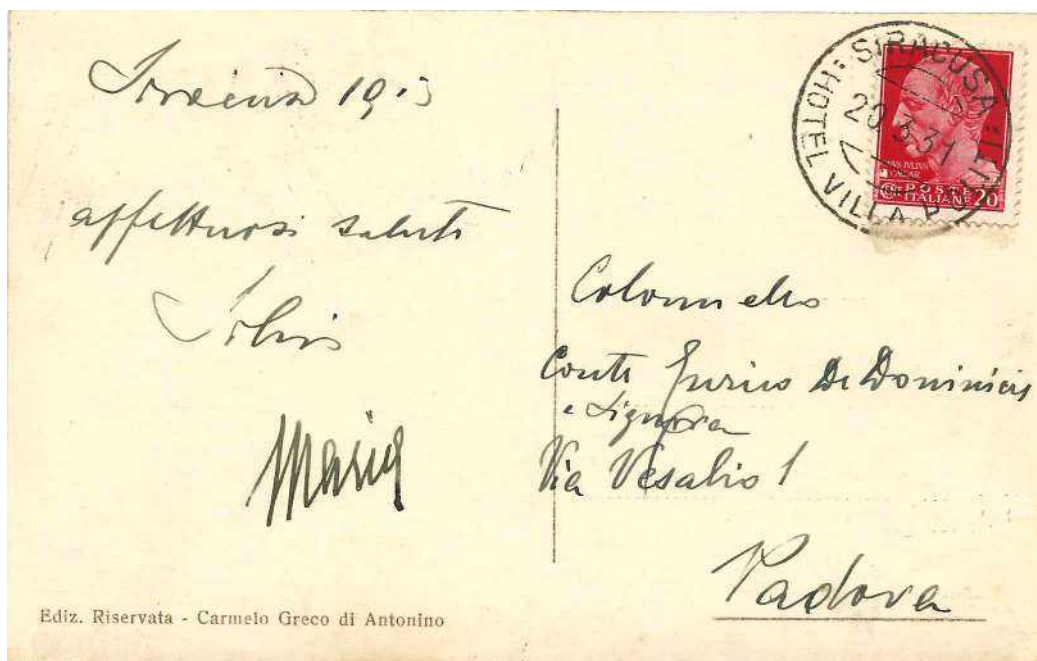 Siracusa 19.3
affettuosi saluti
Silvio
Maria
Ediz. Riservata - Carmelo Greco di Antonino
SIRACUSA
HOTEL VILLA POLITI
20.3.31
IVLIVS
CAESAR
POSTE
ITALIANE 20
Colonnello
Conte Enrico De Dominicis
e Signora
Via Vesalio 1
Padova